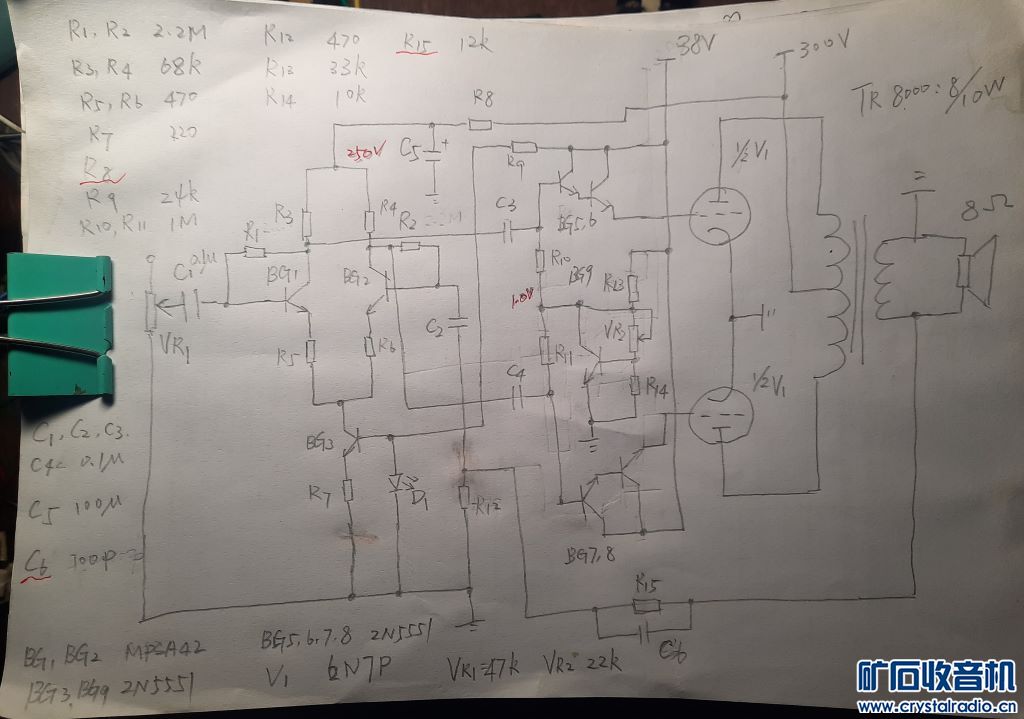 R1, R2 2.2M
R3, R4 68k
R5, R6 470
R7 220
R8
R9 24k
R10, R11 1M
R12 470
R13 33k
R14 10k
R15 12k
38V
300V
TR 8000:8/10W
R8
250V
C5
+
R9
½V1
R3
R4
R2
C3
BG5,6
8Ω
R1
C1 0.1μ
BG1
BG2
R10
BG9
R13
1.0V
VR1
R5
R6
C2
R11
VR2
C4
R14
½V1
BG3
R7
D1
R12
BG7,8
R15
C6
C1, C2, C3.
C4= 0.1μ
C5 100μ
C6 300P
BG1, BG2 MPSA42
BG3, BG9 2N5551
BG5,6,7,8 2N5551
V1 6N7P
VR1=47k
VR2 22k
矿石收音机
www.crystalradio.cn